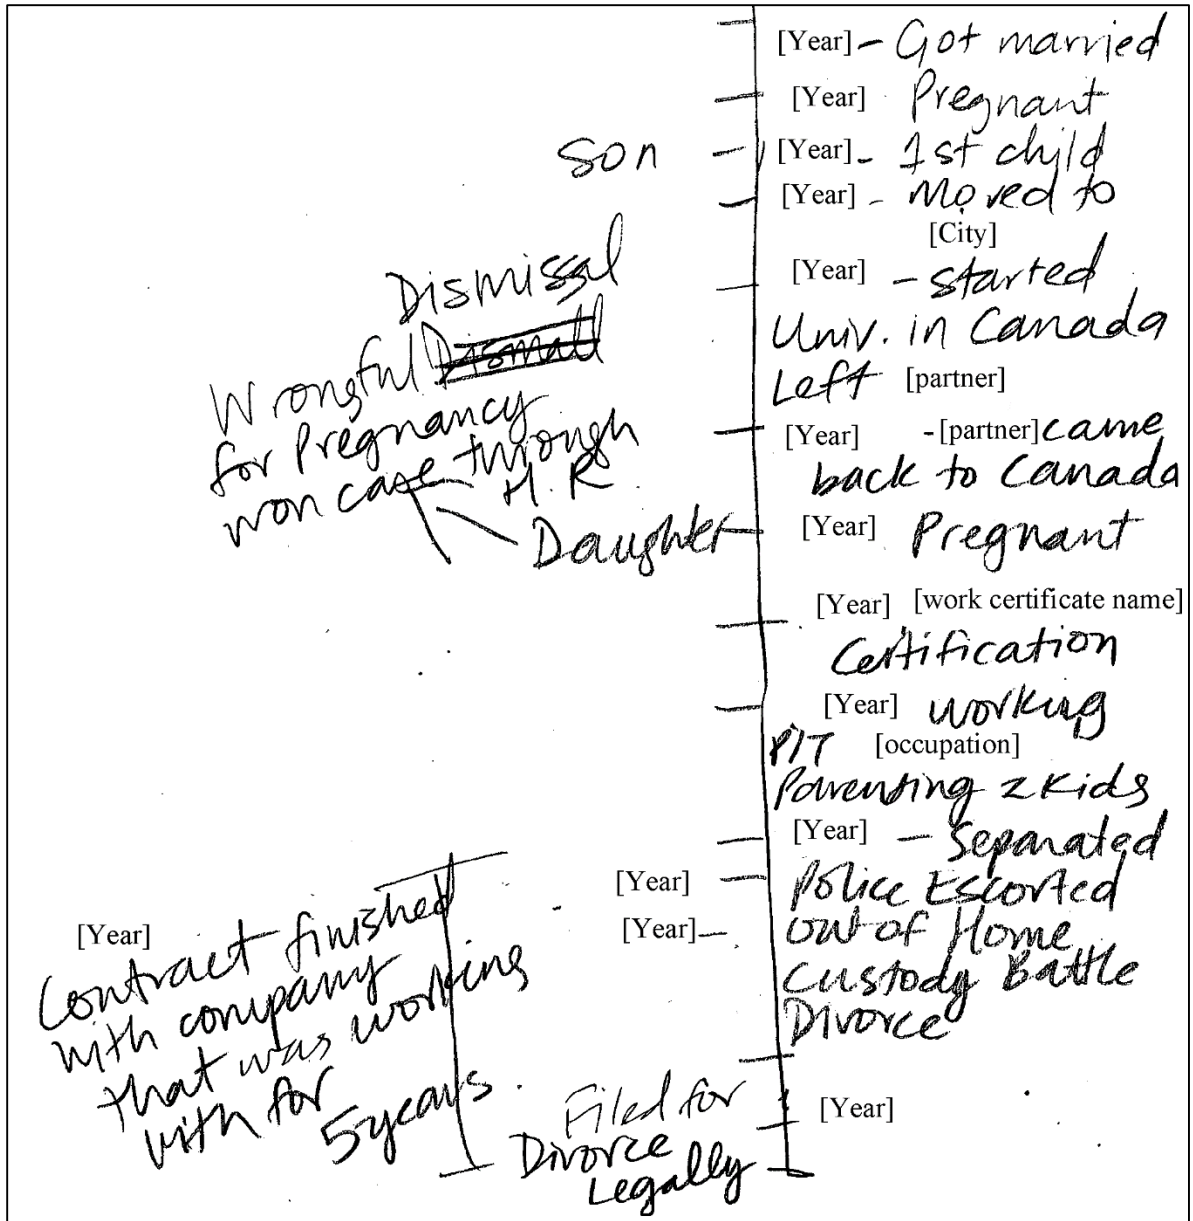 [Year] - Got married
[Year] Pregnant
son [Year] - 1st child
[Year] - Moved to
[City]
[Year] - started
Univ. in Canada
Left [partner]
Dismissal
Wrongful Dismall
for Pregnancy
won case through
H.R.
[Year] - [partner] came
back to Canada
Daughter [Year] Pregnant
[Year] [work certificate name]
Certification
[Year] working
P/T [occupation]
Parenting 2 Kids
[Year] - Separated
[Year] Police Escorted
[Year] - out of Home
Custody Battle
Divorce
[Year]
Contract finished
with company
that was working
with for
5 years.
Filed for [Year]
Divorce
Legally